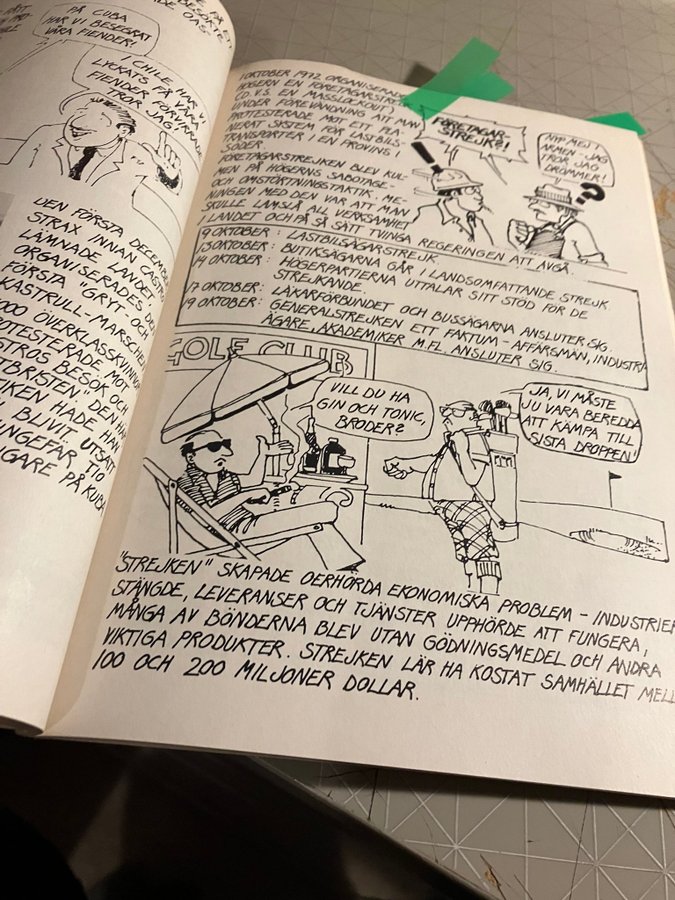 PÅ CUBA
HAR VI BESEGRAT
VÅRA FIENDER!
I CHILE HAR VI
LYCKATS FÅ VÅRA
FIENDER FÖRVIRRADE
TROR JAG!
DEN FÖRSTA DECEMBER
STRAX INNAN CASTRO
LÄMNADE LANDET
ORGANISERADES DEN
FÖRSTA "GRYT- OCH
KASTRULL-MARSCHEN
000 ÖVERKLASSKVINNOR
OTESTERADE MOT
STROS BESÖK OCH
TBRISTEN" DEN HÄR
IKEN HADE HAN
BLIVIT UTSATT
NGEFÄR TIO
IGARE PÅ KUBA
1 OKTOBER 1972 ORGANISERADE
HÖGERN EN FÖRETAGARSTREJK
(D.V.S. EN MASSLOCKOUT)
UNDER FÖREVÄNDNING ATT MAN
PROTESTERADE MOT ETT PLA-
NERAT SYSTEM FÖR LASTBILS-
TRANSPORTER I EN PROVINS I
SÖDER.
FÖRETAGARSTREJKEN BLEV KUL-
MEN PÅ HÖGERNS SABOTAGE-
OCH OMSTÖRTNINGSTAKTIK. ME-
NINGEN MED DEN VAR ATT MAN
SKULLE LAMSLÅ ALL VERKSAMHET
I LANDET OCH PÅ SÅ SÄTT TVINGA REGERINGEN ATT AVGÅ.
FÖRETAGAR-
STREJK?!
NYP MEJ I
ARMEN - JAG
TROR JAG
DRÖMMER!
9 OKTOBER: LASTBILSÄGARSTREJK.
13 OKTOBER: BUTIKSÄGARNA GÅR I LANDSOMFATTANDE STREJK.
14 OKTOBER: HÖGERPARTIERNA UTTALAR SITT STÖD FÖR DE
STREJKANDE.
17 OKTOBER: LÄKARFÖRBUNDET OCH BUSSÄGARNA ANSLUTER SIG.
19 OKTOBER: GENERALSTREJKEN ETT FAKTUM - AFFÄRSMÄN, INDUSTRI-
ÄGARE, AKADEMIKER M.FL. ANSLUTER SIG.
GOLF CLUB
VILL DU HA
GIN OCH TONIC,
BRODER?
JA, VI MÅSTE
JU VARA BEREDDA
ATT KÄMPA TILL
SISTA DROPPEN!
"STREJKEN" SKAPADE OERHÖRDA EKONOMISKA PROBLEM - INDUSTRIER
STÄNGDE, LEVERANSER OCH TJÄNSTER UPPHÖRDE ATT FUNGERA,
MÅNGA AV BÖNDERNA BLEV UTAN GÖDNINGSMEDEL OCH ANDRA
VIKTIGA PRODUKTER. STREJKEN LÄR HA KOSTAT SAMHÄLLET MELL
100 OCH 200 MILJONER DOLLAR.